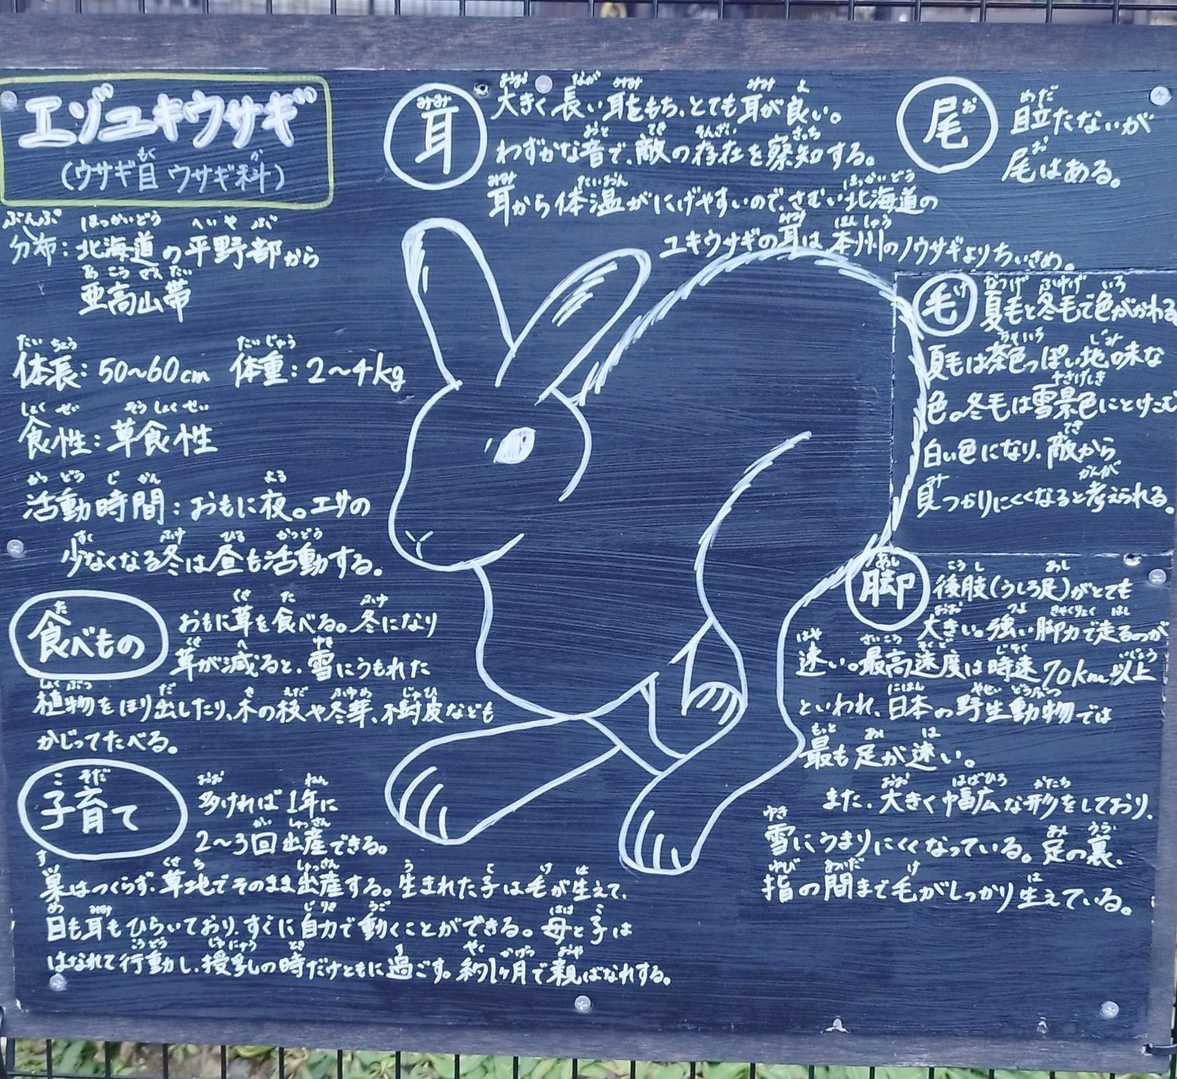 エゾユキウサギ
(ウサギ目 ウサギ科)
分布：北海道の平野部から
亜高山帯
体長：50〜60cm 体重：2〜4kg
食性：草食性
活動時間：おもに夜。エサの
少なくなる冬は昼も活動する。
食べもの
おもに草を食べる。冬になり
草が減ると、雪にうもれた
植物をほり出したり、木の枝や冬芽、樹皮なども
かじってたべる。
子育て
多ければ1年に
2〜3回出産できる。
巣はつくらず、草地でそのまま出産する。生まれた子は毛が生えて、
目も耳もひらいており、すぐに自力で動くことができる。母と子は
はなれて行動し、授乳の時だけともに過ごす。約1ヶ月で親ばなれする。
耳
大きく長い耳をもち、とても耳が良い。
わずかな音で、敵の存在を察知する。
耳から体温がにげやすいので、さむい北海道の
ユキウサギの耳は本州のノウサギよりちいさめ。
尾
目立たないが
尾はある。
毛
夏毛と冬毛で色がかわる
夏毛は茶色っぽい地味な
色。冬毛は雪景色にとけこむ
白い色になり、敵から
見つかりにくくなると考えられる。
脚
後肢(うしろ足)がとても
大きい。強い脚力で走るのが
速い。最高速度は時速70km以上
といわれ、日本の野生動物では
最も足が速い。
また、大きく幅広な形をしており、
雪にうまりにくくなっている。足の裏、
指の間まで毛がしっかり生えている。